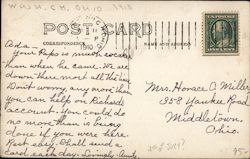 WASH. C.H., OHIO 1910
POST CARD
CORRESPONDENCE
1910
Ada:—
Your Papa is much worse
than when he came. We are
down there most all the time
Don't worry, any more than
you can help on Richard's
account. You could do
no more than is being
done if you were here.
Rest easy. Shall send a
card each day. Lovingly Aunt
Mrs. Horace O. Miller
358 Yankee Road
Middletown,
Ohio.